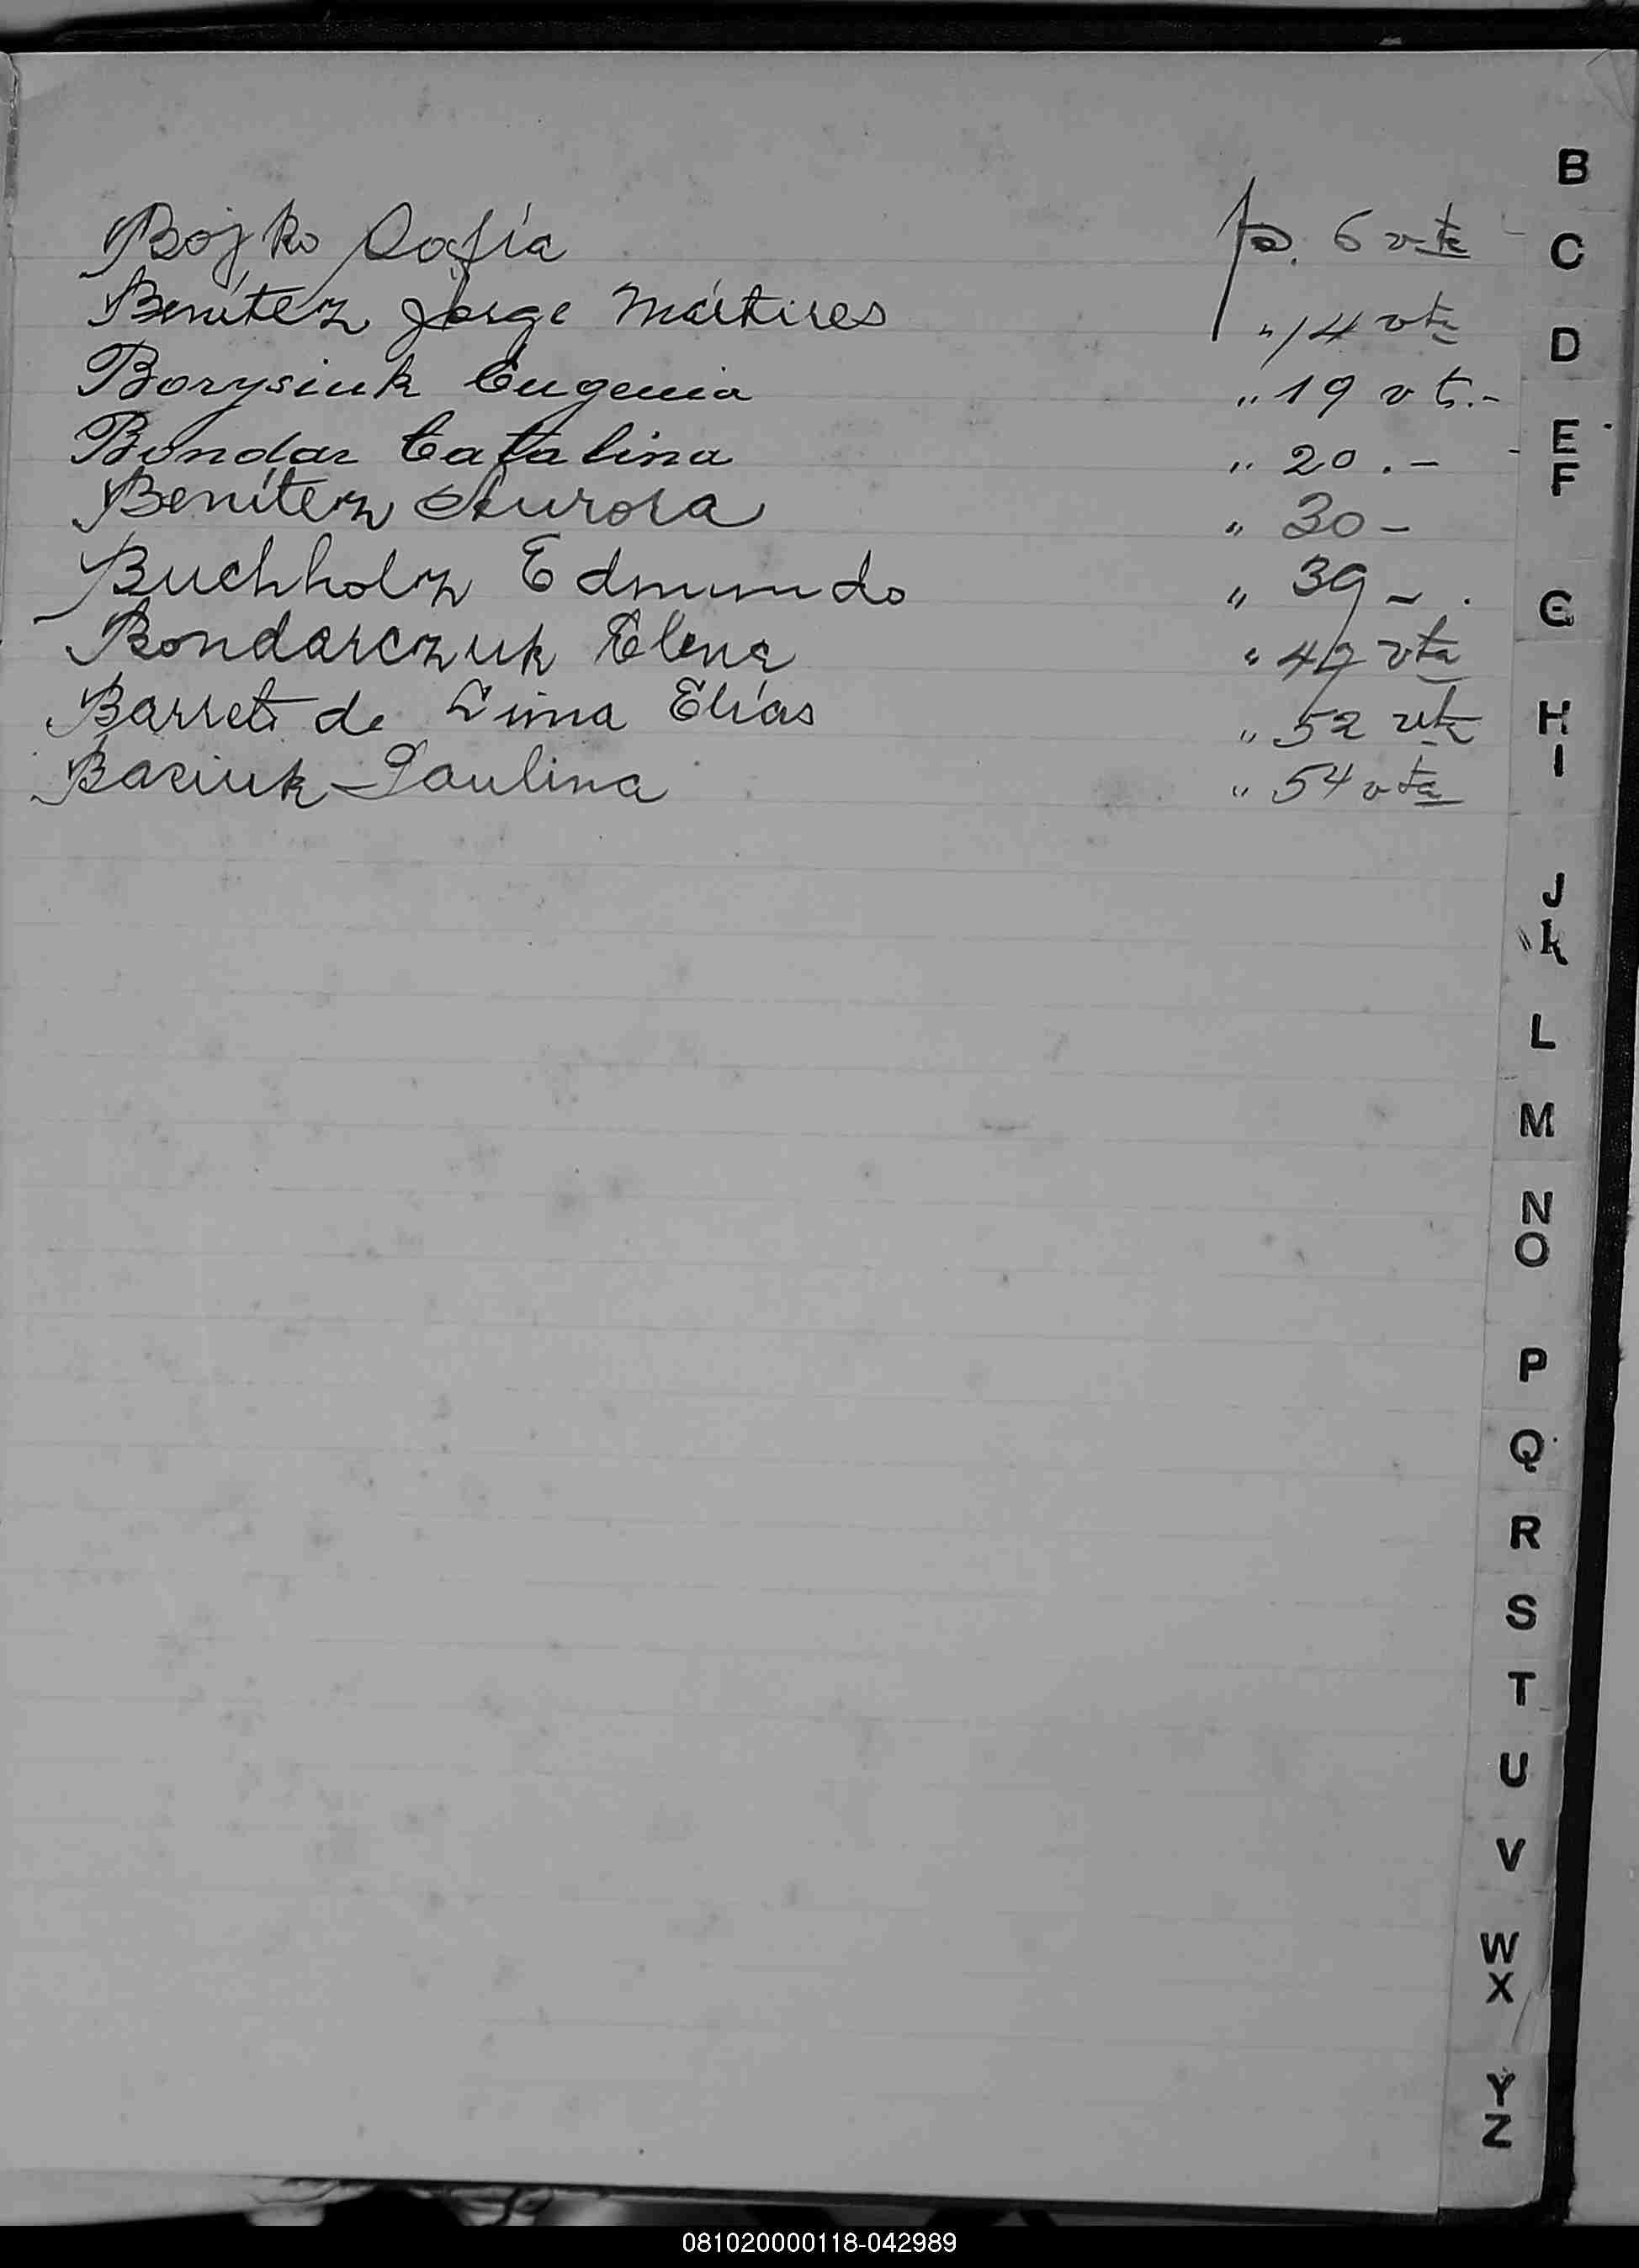 Bojko Sofía p. 6 vta
Benítez Jorge Mártires " 14 vta
Borysiuk Eugenia " 19 vt.-
Bondar Catalina " 20.-
Benítez Aurora " 30-
Buchholz Edmundo " 39-.
Bondarczuk Elena " vta
Barreto de Lima Elías " 52 vta
Basiuk Paulina " 54 vta
B
C
D
E
F
G
H
I
J
k
L
M
N
O
P
Q
R
S
T
U
V
W
X
Y
Z
081020000118-042989